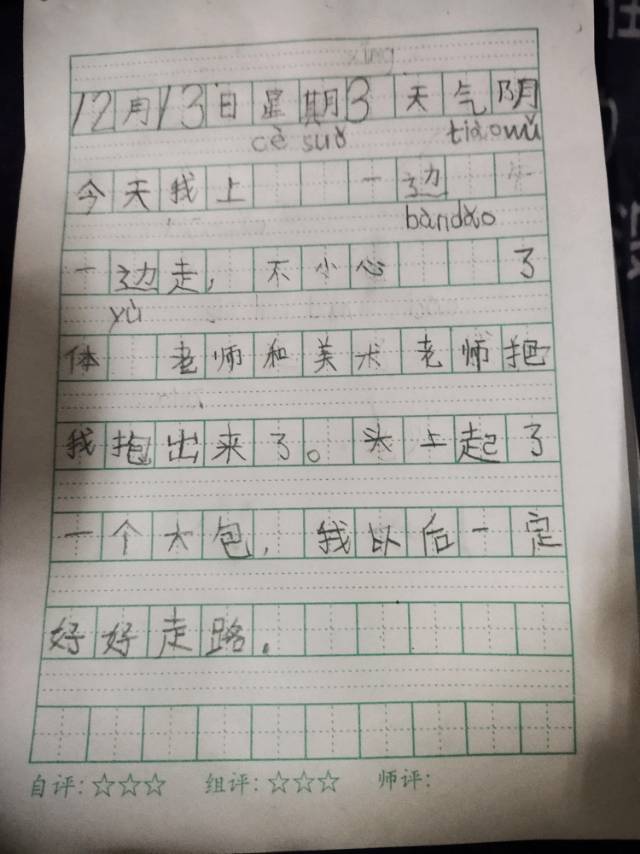 xīng
12月13日星期3 天气阴
cè suǒ tiàowǔ
今天我上 一边
bàndǎo
一边走，不小心 了
yù
体 老师和美术老师把
我抱出来了。头上起了
一个大包，我以后一定
好好走路。
自评：☆☆☆ 组评：☆☆☆ 师评：